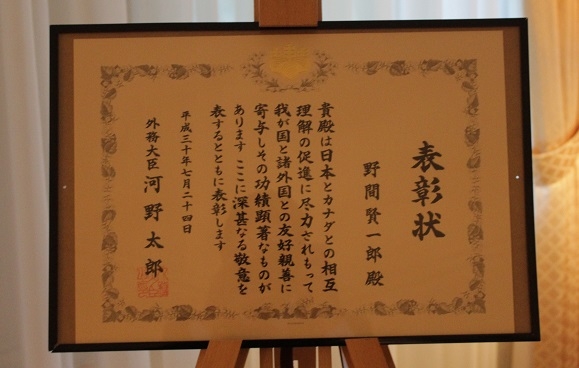 表彰状
野間賢一郎殿
貴殿は日本とカナダとの相互
理解の促進に尽力されもって
我が国と諸外国との友好親善に
寄与しその功績顕著なものが
あります ここに深甚なる敬意を
表するとともに表彰します
平成三十年七月二十四日
外務大臣 河野太郎